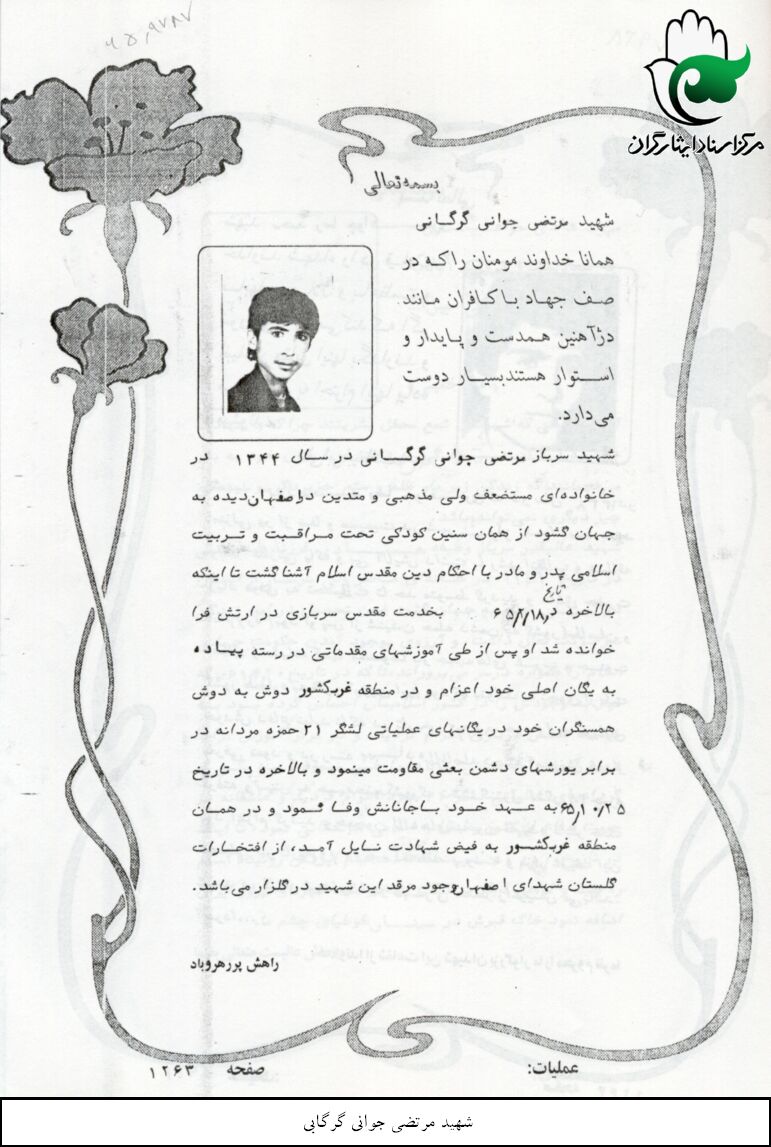 ۶۵٫۹۷۸۷
مرکز اسناد ایثارگران
بسمه تعالی
شهید مرتضی جوانی گرگانی
همانا خداوند مومنان را که در
صف جهاد با کافران مانند
دژآهنین همدست و پایدار و
استوار هستندبسیار دوست
می‌دارد.
شهید سرباز مرتضی جوانی گرگانی در سال ۱۳۴۴ در
خانواده‌ای مستضعف ولی مذهبی و متدین در اصفهان دیده به
جهان گشود از همان سنین کودکی تحت مراقبت و تربیت
اسلامی پدر و مادر با احکام دین مقدس اسلام آشنا گشت تا اینکه
بالاخره در تاریخ ۶۵/۲/۱۸ بخدمت مقدس سربازی در ارتش فرا
خوانده شد او پس از طی آموزشهای مقدماتی در رسته پیاده
به یگان اصلی خود اعزام و در منطقه غرب‌کشور دوش به دوش
همسنگران خود در یگانهای عملیاتی لشگر ۲۱ حمزه مردانه در
برابر یورشهای دشمن بعثی مقاومت مینمود و بالاخره در تاریخ
۶۵/۱۰/۲۵ به عهد خود با جانانش وفا نمود و در همان
منطقه غرب‌کشور به فیض شهادت نایل آمد، از افتخارات
گلستان شهدای اصفهان وجود مرقد این شهید در گلزار می‌باشد.
راهش پررهروباد
عملیات: صفحه ۱۲۶۳
شهید مرتضی جوانی گرگابی